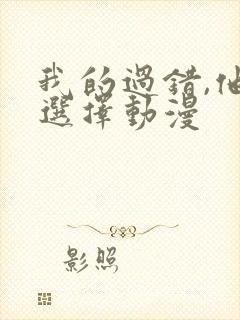 我的過錯,他
選擇動漫
影照